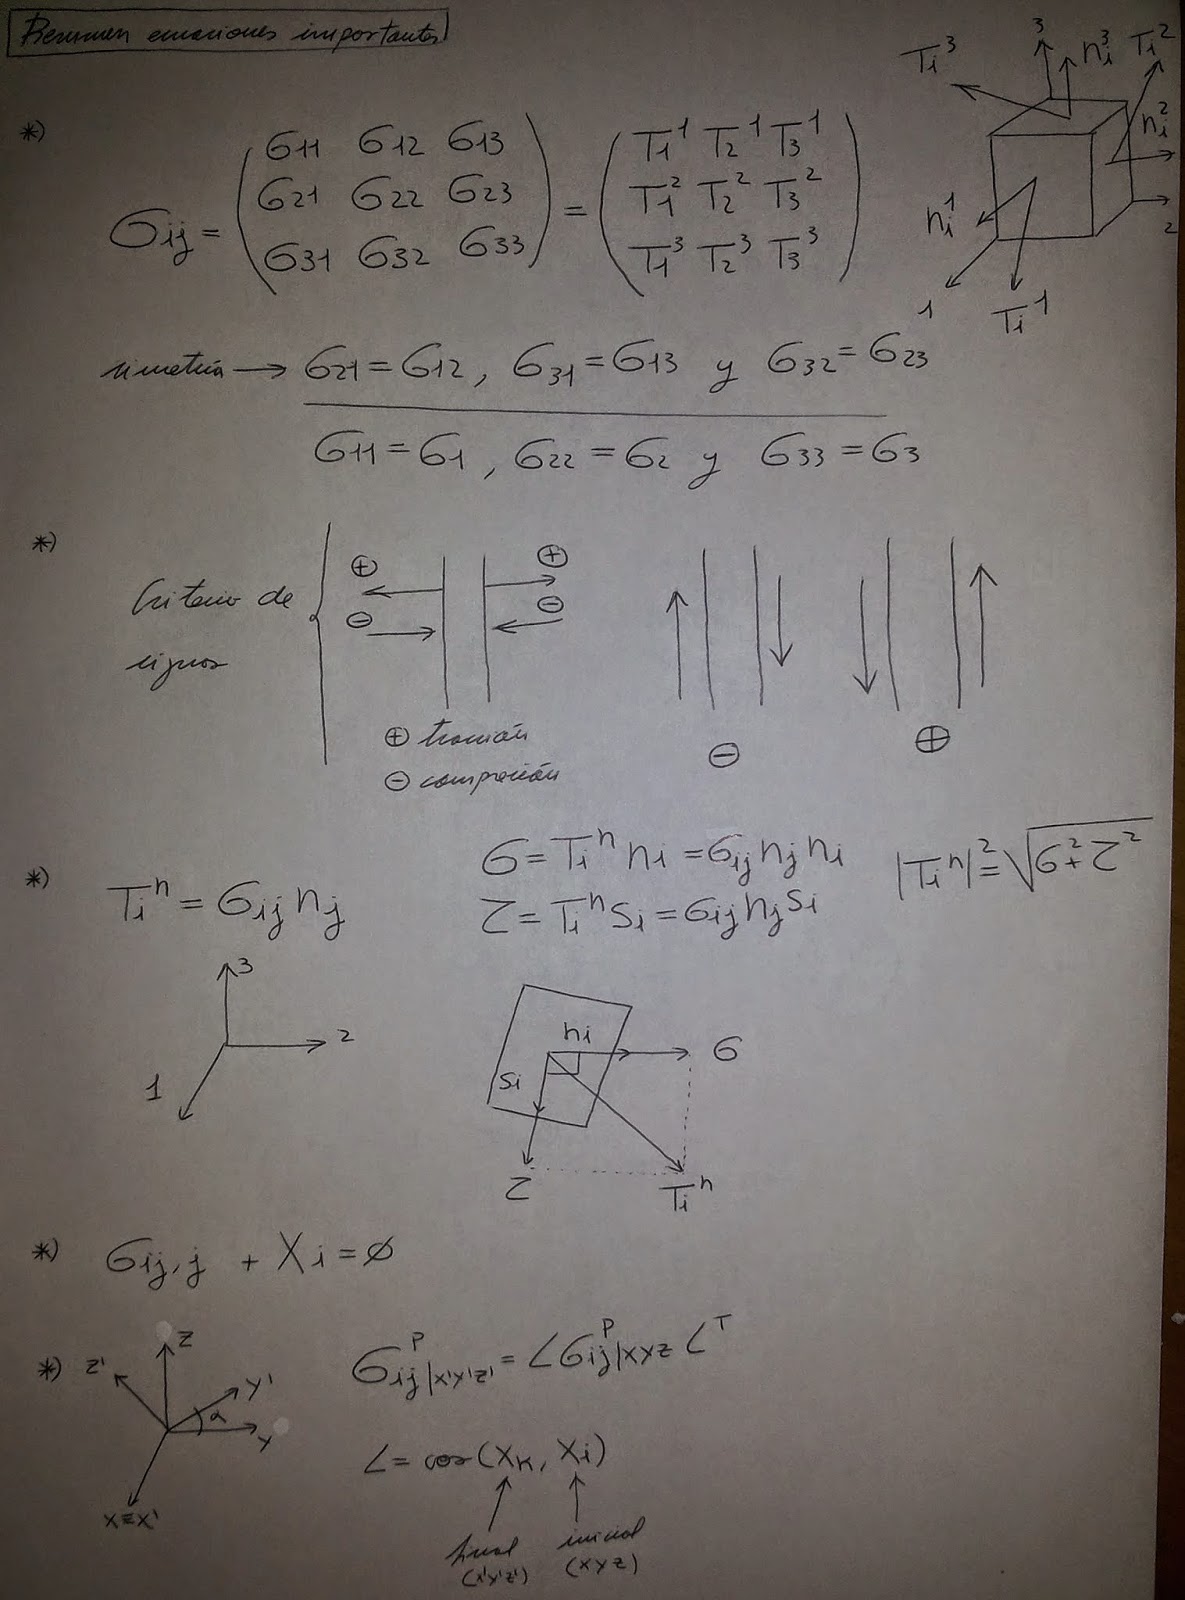 Resumen ecuaciones importantes
Ti³ 3 ni³ Ti² ni² 2 ni¹ 1 Ti¹
*) σij = (σ11 σ12 σ13 = (T1¹ T2¹ T3¹
σ21 σ22 σ23 T1² T2² T3²
σ31 σ32 σ33) T1³ T2³ T3³)
simetría → σ21 = σ12, σ31 = σ13 y σ32 = σ23
σ11 = σ1, σ22 = σ2 y σ33 = σ3
*) Criterio de signos { ⊕ ⊕
⊖ ⊖
⊕ tracción
⊖ compresión
⊖ ⊕
*) Tiⁿ = σij nj
σ = Tiⁿ ni = σij nj ni
τ = Tiⁿ si = σij nj si
|Tiⁿ|² = √(σ² + τ²)
3 2 1
ni si σ τ Tiⁿ
*) σij,j + Xi = ∅
*) z z' y' α y x≡x'
σij^P|x'y'z' = L σij^P|xyz L^T
L = cos(xk, xi)
final inicial
(x'y'z') (xyz)